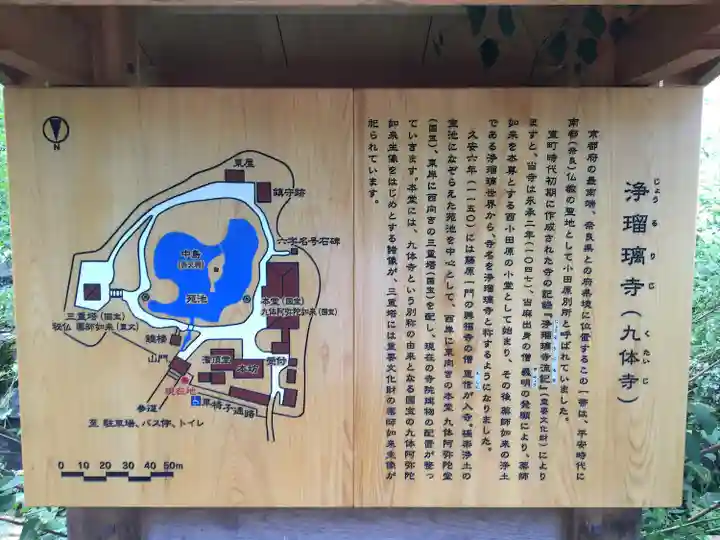 浄瑠璃寺(九体寺)
じょうるりじ
くたいじ
京都府の最南端、奈良県との府県境に位置するこの一帯は、平安時代に
南都(奈良)仏教の聖地として小田原別所と呼ばれていました。
室町時代初期に作成された寺の記録『浄瑠璃寺流記』(重要文化財)により
ますと、当寺は永承二年(一〇四七)、当麻出身の僧 義明の発願により、薬師
如来を本尊とする西小田原の小堂として始まり、その後 薬師如来の浄土
である浄瑠璃世界から、寺名を浄瑠璃寺と称するようになりました。
久安六年(一一五〇)には藤原一門の興福寺の僧 恵信が入寺。極楽浄土の
宝池になぞらえた苑池を中心として、西岸に東向きの本堂 九体阿弥陀堂
(国宝)、東岸に西向きの三重塔(国宝)を配し、現在の寺院建物の配置が整っ
ていきます。本堂には、九体寺という別称の由来となる国宝の九体阿弥陀
如来坐像をはじめとする諸像が、三重塔には重要文化財の薬師如来坐像が
祀られています。
N
東屋
鎮守跡
六字名号石碑
中島
苑池
本堂(国宝)
九体阿弥陀如来(国宝)
三重塔(国宝)
秘仏 薬師如来(重文)
鐘楼
山門
灌頂堂
本坊
受付
現在地
車椅子通路
参道
至 駐車場、バス停、トイレ
0 10 20 30 40 50m